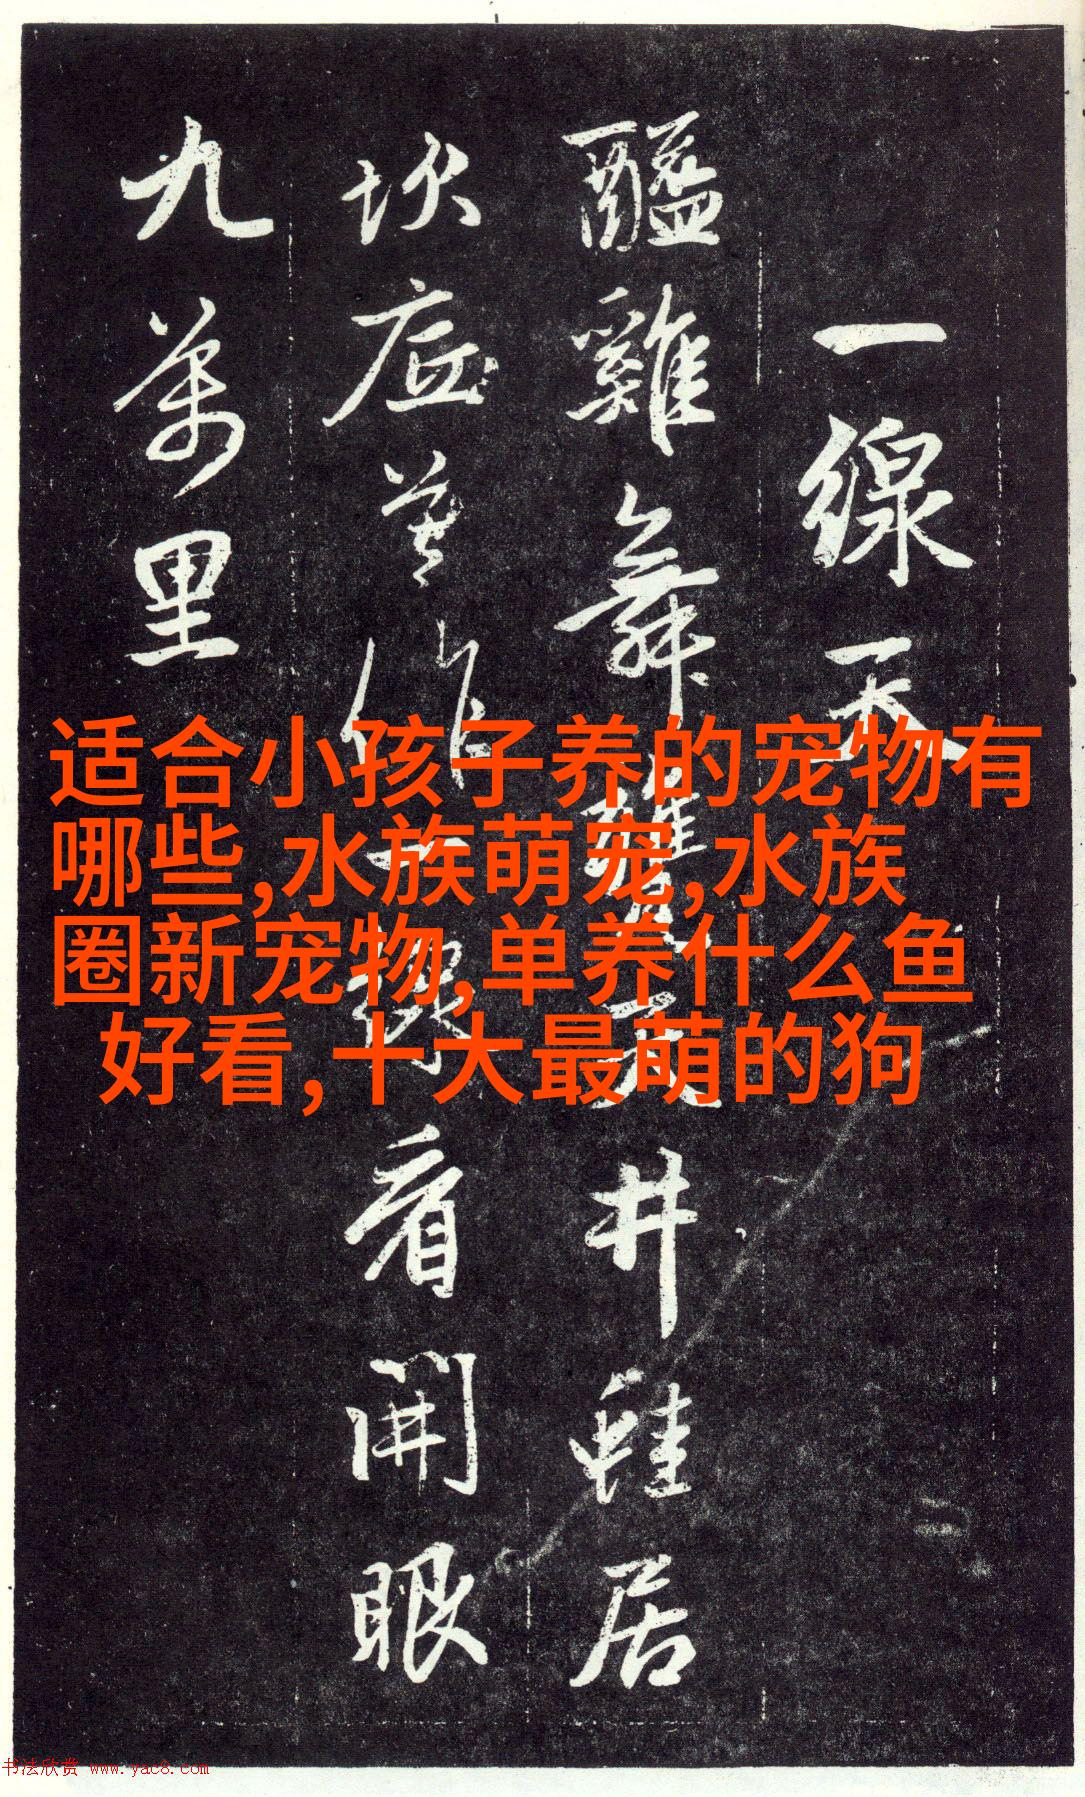 一線天
醯雞舞甕天井蛙居
坎底莫作一線看開眼
九萬里
适合小孩子养的宠物有
哪些,水族萌宠,水族
圈新宠物,单养什么鱼
好看,十大最萌的狗
书法欣赏 www.yac8.com